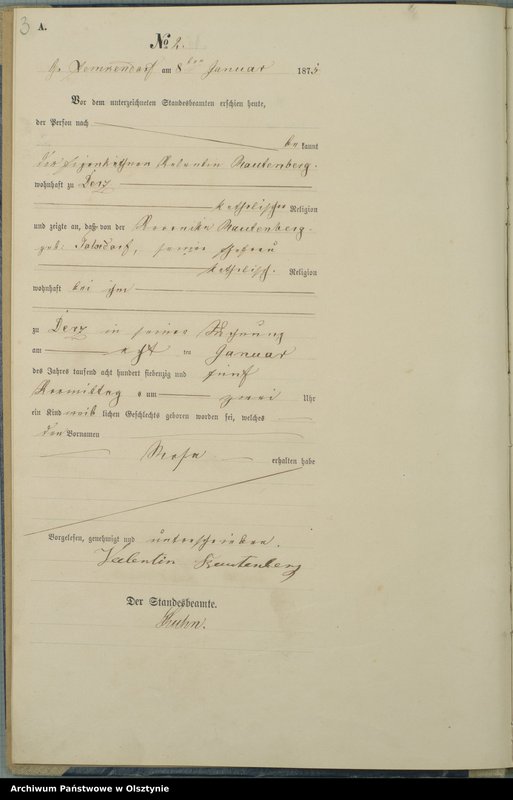 3 A.
No 2.
Gr. Lemkendorf am 8ten Januar 1875
Vor dem unterzeichneten Standesbeamten erschien heute,
der Person nach
be kannt
der Eigenkäthner Valentin Rautenberg
wohnhaft zu Derz
katholischer Religion
und zeigte an, daß von der Veronika Rautenberg
geb. seiner Ehefrau
katholisch. Religion
wohnhaft bei ihm
zu Derz in seiner Wohnung
am acht ten Januar
des Jahres tausend acht hundert siebenzig und fünf
Vormittag s um zwei Uhr
ein Kind weib lichen Geschlechts geboren worden sei, welches
den Vornamen
Rosa
erhalten habe
Vorgelesen, genehmigt und unterschrieben.
Valentin Rautenberg
Der Standesbeamte.
Huhn.
Archiwum Państwowe w Olsztynie